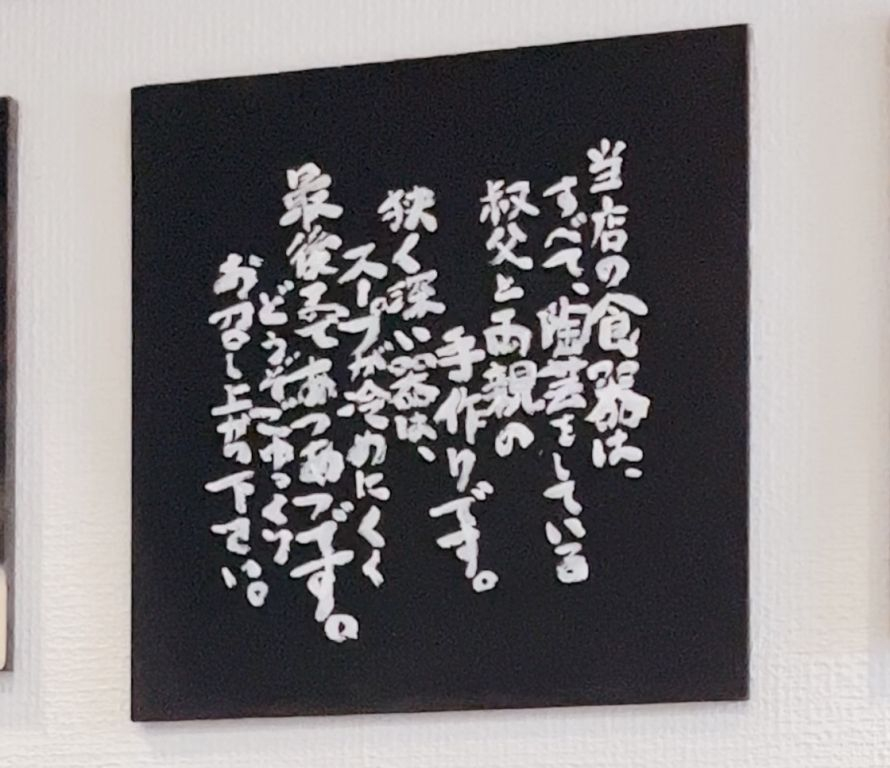 当店の食器は、
すべて、陶芸をしている
叔父と両親の
手作りです。
狭く深い器は、
スープが冷めにくく
最後まであつあつです。
どうぞごゆっくり
お召し上がり下さい。